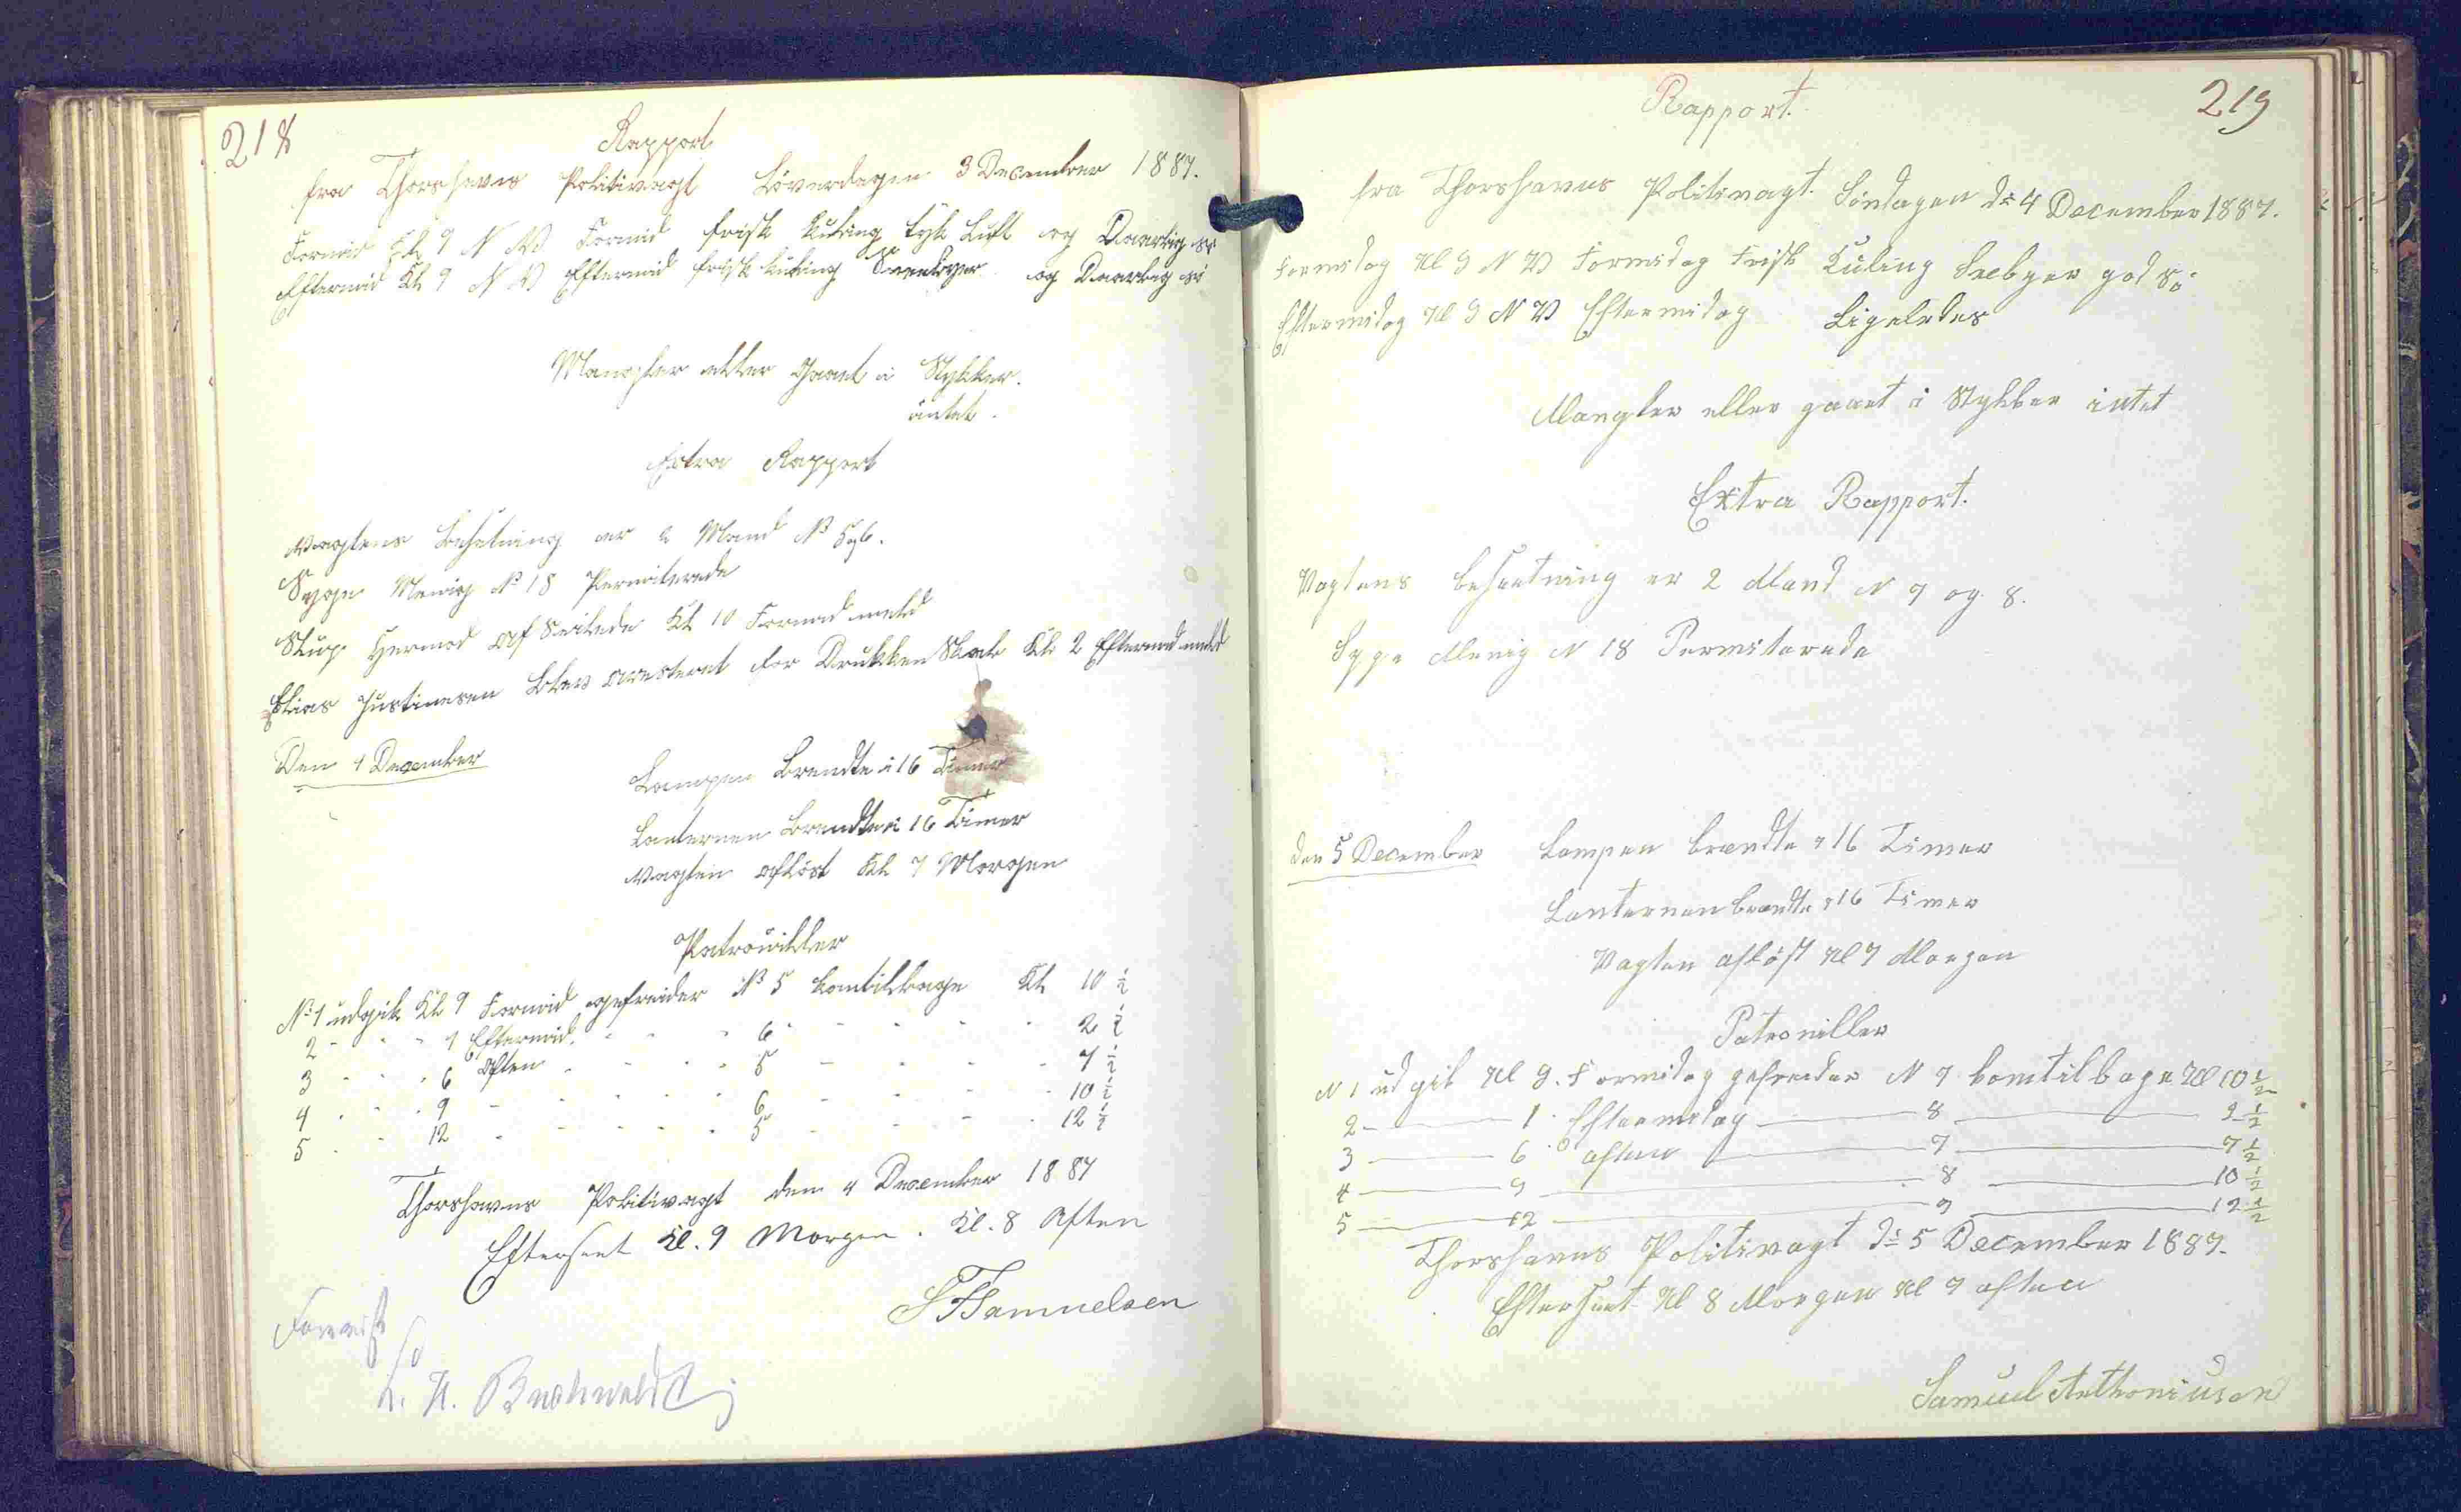 218
Rapport
fra Thorshavns Politivagt Löverdagen 3 December 1887.
Formid Kl 9 N V Formid frisk Kuling tyk Luft og Daarlig sö
Eftermid Kl 9 N V Eftermid frisk Kuling Sneebyer og Daarlig sö
Mangler eller Gaaet i Stykker.
intet.
Extra Rapport
Vagtens Besetning er 2 Mand No 5 og 6.
Syge Menig No 18 Permiterede
Slup Hermod Af Seilede Kl 10 Formid meld
Elias Justinesen blev aresteret for Drukken Skab Kl 2 Eftermid meld
Den 4 December
Lampen Brendte i 16 Timer
Lanternen Brendte i 16 Timer
Vagten aflöst Kl 7 Morgen
Patrouiller
No 1 udgik Kl 9 Formid gefreider No 5 komtilbage Kl 10 1/2
2 - - - 1 Eftermid. - - - 6 - - - 2 1/2
3 - - - 6 Aften - - - 5 - - - 7 1/2
4 - - - 9 - - - 6 - - - 10 1/2
5 - - 12 - - - 5 - - - 12 1/2
Thorshavns Politivagt den 4 December 1887
Efterseet Kl. 9 Morgen. Kl. 8 Aften
S F Samuelsen
Forevist
Buchwaldt
219
Rapport.
fra Thorshavns Politivagt. Söndagen d: 4 December 1887.
Formidag Kl 9 N V Formidag Frisk Kuling Snebyer god Sö
Eftermidag Kl 9 N V Eftermidag Ligeledes
Mangler eller gaaet i Stykker intet
Extra Rapport.
Vagtens besaetning er 2 Mand N 7 og 8.
Syge Menig N 18 Permiterede
den 5 December Lampen brendte i 16 Timer
Lanternen brendte i 16 Timer
Vagten aflöst Kl 7 Morgen
Patrouiller
N 1 udgik Kl 9. Formidag gefreider N 7 komtilbage Kl 10 1/2
2 — 1. Eftermidag — 8 — 2 1/2
3 — 6. aften — 7 — 7 1/2
4 — 9 — 8 — 10 1/2
5 — 12 — 9 — 12 1/2
Thorshavns Politivagt d: 5 December 1887.
Efterseet Kl 8 Morgen Kl 9 aften
Samuel Anthoniusen